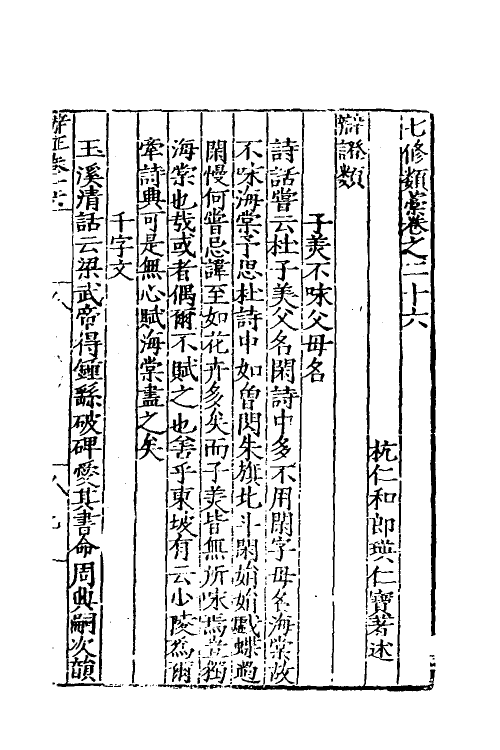 七修類藁卷之二十六
杭仁和郎瑛仁寶著述
辯證類
子美不咏父母名
詩話嘗云杜子美父名閑詩中多不用閑字母名海棠故
不咏海棠予思杜詩中如曾閃朱旗北斗閑娟娟戲蝶過
閑慢何嘗忌諱至如花卉多矣而子美皆無所咏焉豈獨
海棠也哉或者偶爾不賦之也善乎東坡有云少陵爲爾
牽詩興可是無心賦海棠盡之矣
千字文
玉溪清話云梁武帝得鍾繇破碑愛其書命周興嗣次韻